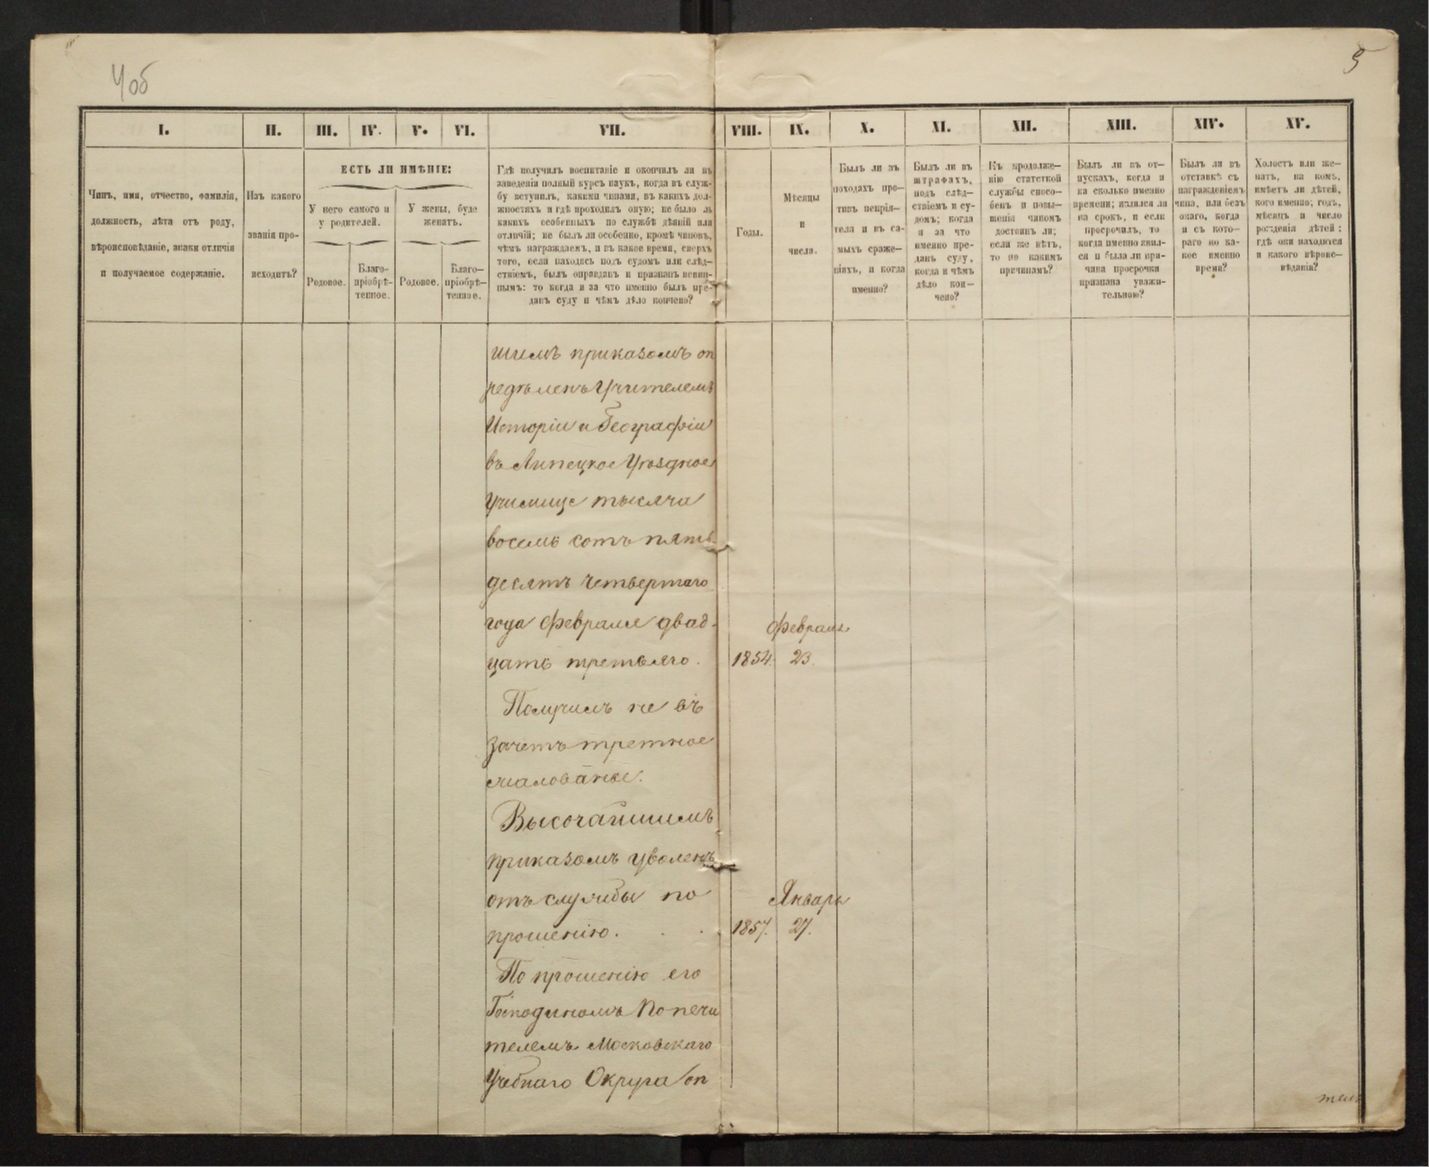 4об
5
I.
II.
III.
IV.
V.
VI.
VII.
VIII.
IX.
X.
XI.
XII.
XIII.
XIV.
XV.
Чинъ, имя, отчество, фамилія,
должность, лѣта отъ роду,
вѣроисповѣданіе, знаки отличія
и получаемое содержаніе.
Изъ какого
званія про-
исходитъ?
ЕСТЬ ЛИ ИМѢНІЕ:
У него самого и
у родителей.
У жены, буде
женатъ.
Родовое.
Благо-
пріобрѣ-
тенное.
Родовое.
Благо-
пріобрѣ-
тенное.
Гдѣ получилъ воспитаніе и окончилъ ли въ
заведеніи полный курсъ наукъ, когда въ служ-
бу вступилъ, какими чинами, въ какихъ дол-
жностяхъ и гдѣ проходилъ оную; не было ль
какихъ особенныхъ по службѣ дѣяній или
отличій; не былъ ли особенно, кромѣ чиновъ,
чѣмъ награждаемъ, и въ какое время, сверхъ
того, если находясь подъ судомъ или слѣд-
ствіемъ, былъ оправданъ и признанъ невин-
нымъ: то когда и за что именно былъ пре-
данъ суду и чѣмъ дѣло кончено?
Годы.
Мѣсяцы
и
числа.
Былъ ли въ
походахъ про-
тивъ непрія-
теля и въ са-
мыхъ сраже-
ніяхъ, и когда
именно?
Былъ ли въ
штрафахъ,
подъ слѣд-
ствіемъ и су-
домъ; когда
и за что
именно пре-
данъ суду,
когда и чѣмъ
дѣло кон-
чено?
Къ продолже-
нію статской
службы спосо-
бенъ и повы-
шенія чиномъ
достоинъ ли;
если же нѣтъ,
то по какимъ
причинамъ?
Былъ ли въ от-
пускахъ, когда и
на сколько именно
времени; явился ли
на срокъ, и если
просрочилъ, то
когда именно явил-
ся и была ли при-
чина просрочки
признана уважи-
тельною?
Былъ ли въ
отставкѣ съ
награжденіемъ
чина, или безъ
онаго, когда
и съ кото-
раго по ка-
кое именно
время?
Холостъ или же-
натъ, на комъ,
имѣетъ ли дѣтей,
кого именно; годъ,
мѣсяцъ и число
рожденія дѣтей;
гдѣ они находятся
и какого вѣроис-
повѣданія?
шимъ приказомъ оп
редѣленъ Учителемъ
Исторіи и Географіи
въ Липецкое Уѣздное
Училище тысяча
восемь сотъ пять
десятъ четвертаго
года Февраля двад-
цать третьяго.
Февраля
1854. 23.
Получилъ не въ
зачетъ третное
жалованье.
Высочайшимъ
приказомъ уволенъ
отъ службы по
прошенію.
Январь
1857. 27.
По прошенію его
Господиномъ Попечи
телемъ Московскаго
Учебнаго Округа оп